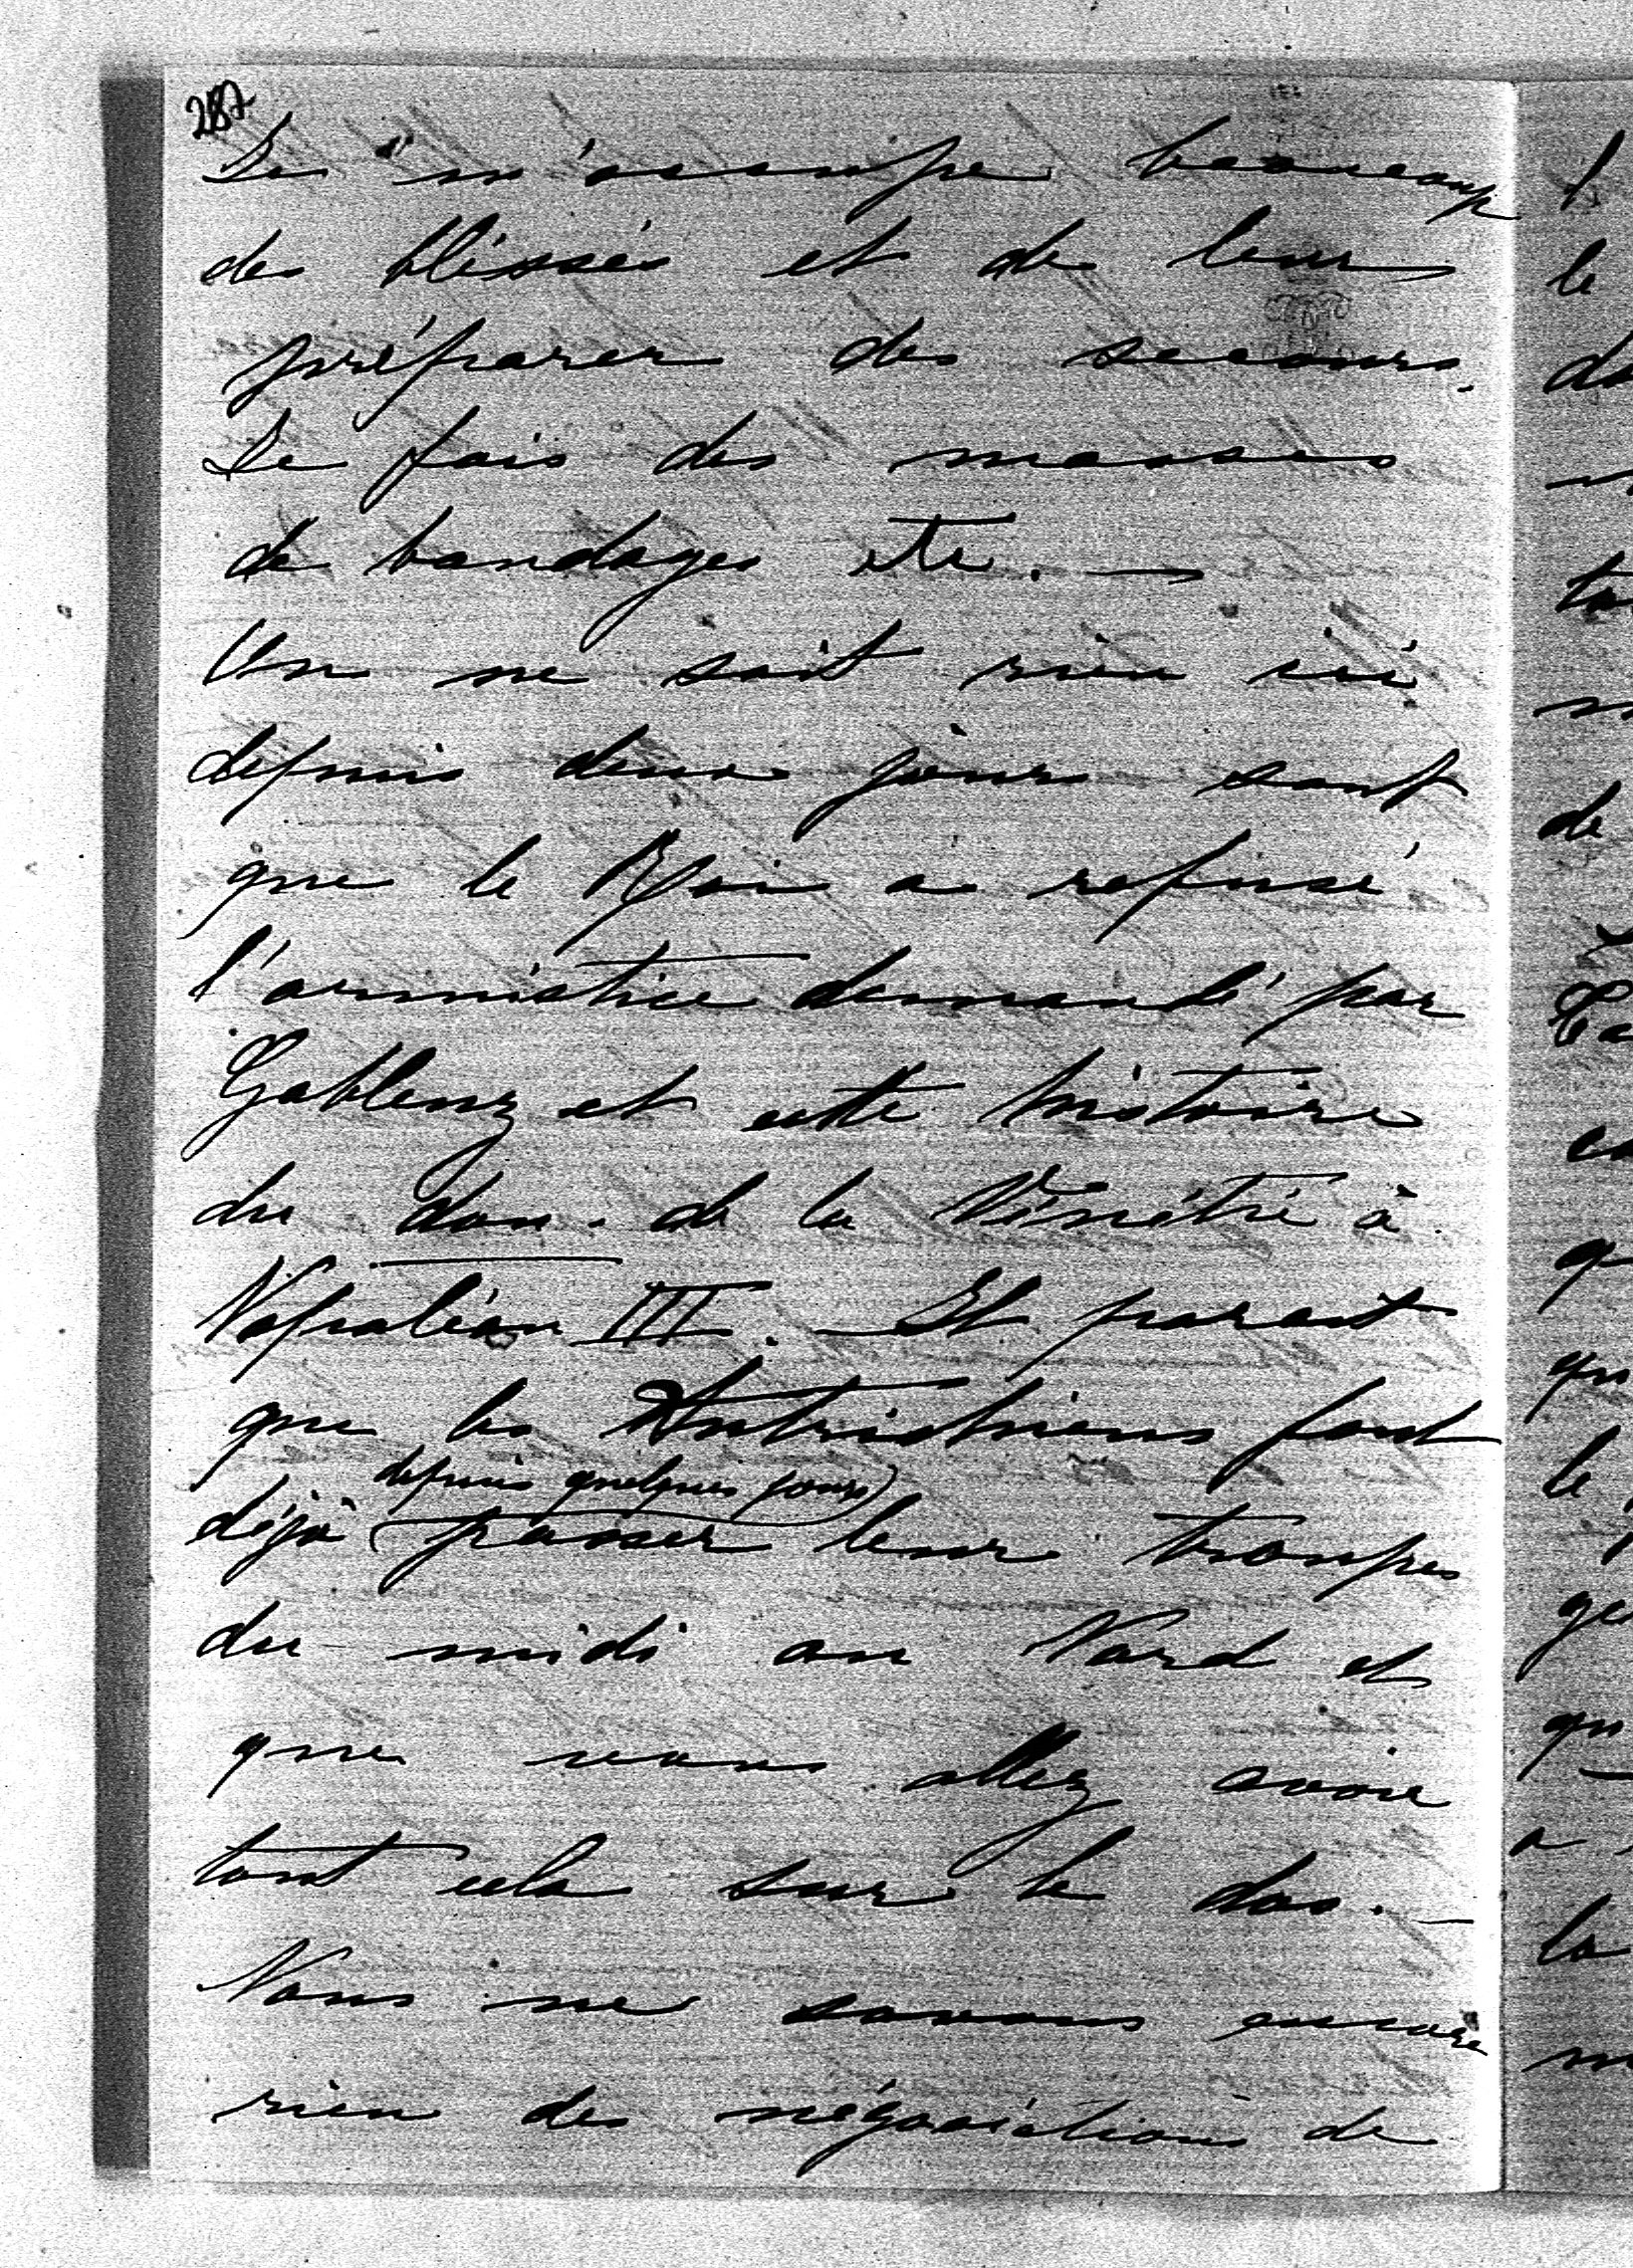 287
Je m'occupe beaucoup
des blessés et de leur
préparer des secours.
Je fais des masses
de bandages etc. —
On ne sait rien ici
depuis deux jours sauf
que le Roi a refusé
l'armistice demandé par
Gablenz et cette histoire
du don de la Vénétie à
Napoléon III. — Il parait
que les Autrichiens font
depuis quelques jours
déjà passer leur troupes
du midi au Nord et
que vous allez avoir
tout cela sur le dos. —
Nous ne savons encore
rien des négociations de